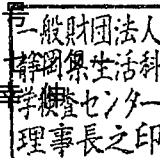 一般財団法人
静岡県生活科
学検査センター
理事長之印
号
七
幸